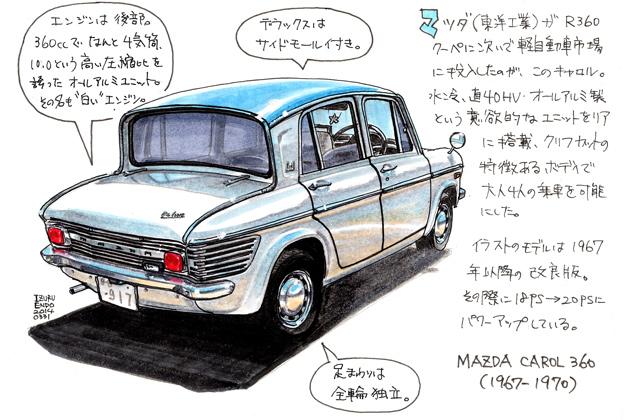 エンジンは後部。
360ccで、なんと4気筒、
10.0という高い圧縮比を
誇ったオールアルミユニット。
その名も"白い"エンジン。
デラックスは
サイドモール付き。
マツダ(東洋工業)が R360
クーペに次いで軽自動車市場
に投入したのが、このキャロル。
水冷、直4OHV・オールアルミ製
という意欲的なユニットをリア
に搭載、クリフカットの
特徴あるボディで
大人4人の乗車を可能
にした。
イラストのモデルは1967
年以降の改良版。
その際に18PS→20PSに
パワーアップしている。
MAZDA CAROL 360
(1967-1970)
De luxe
MAZDA
917
IZURU
ENDO
2014
0331
足まわりは
全輪独立。